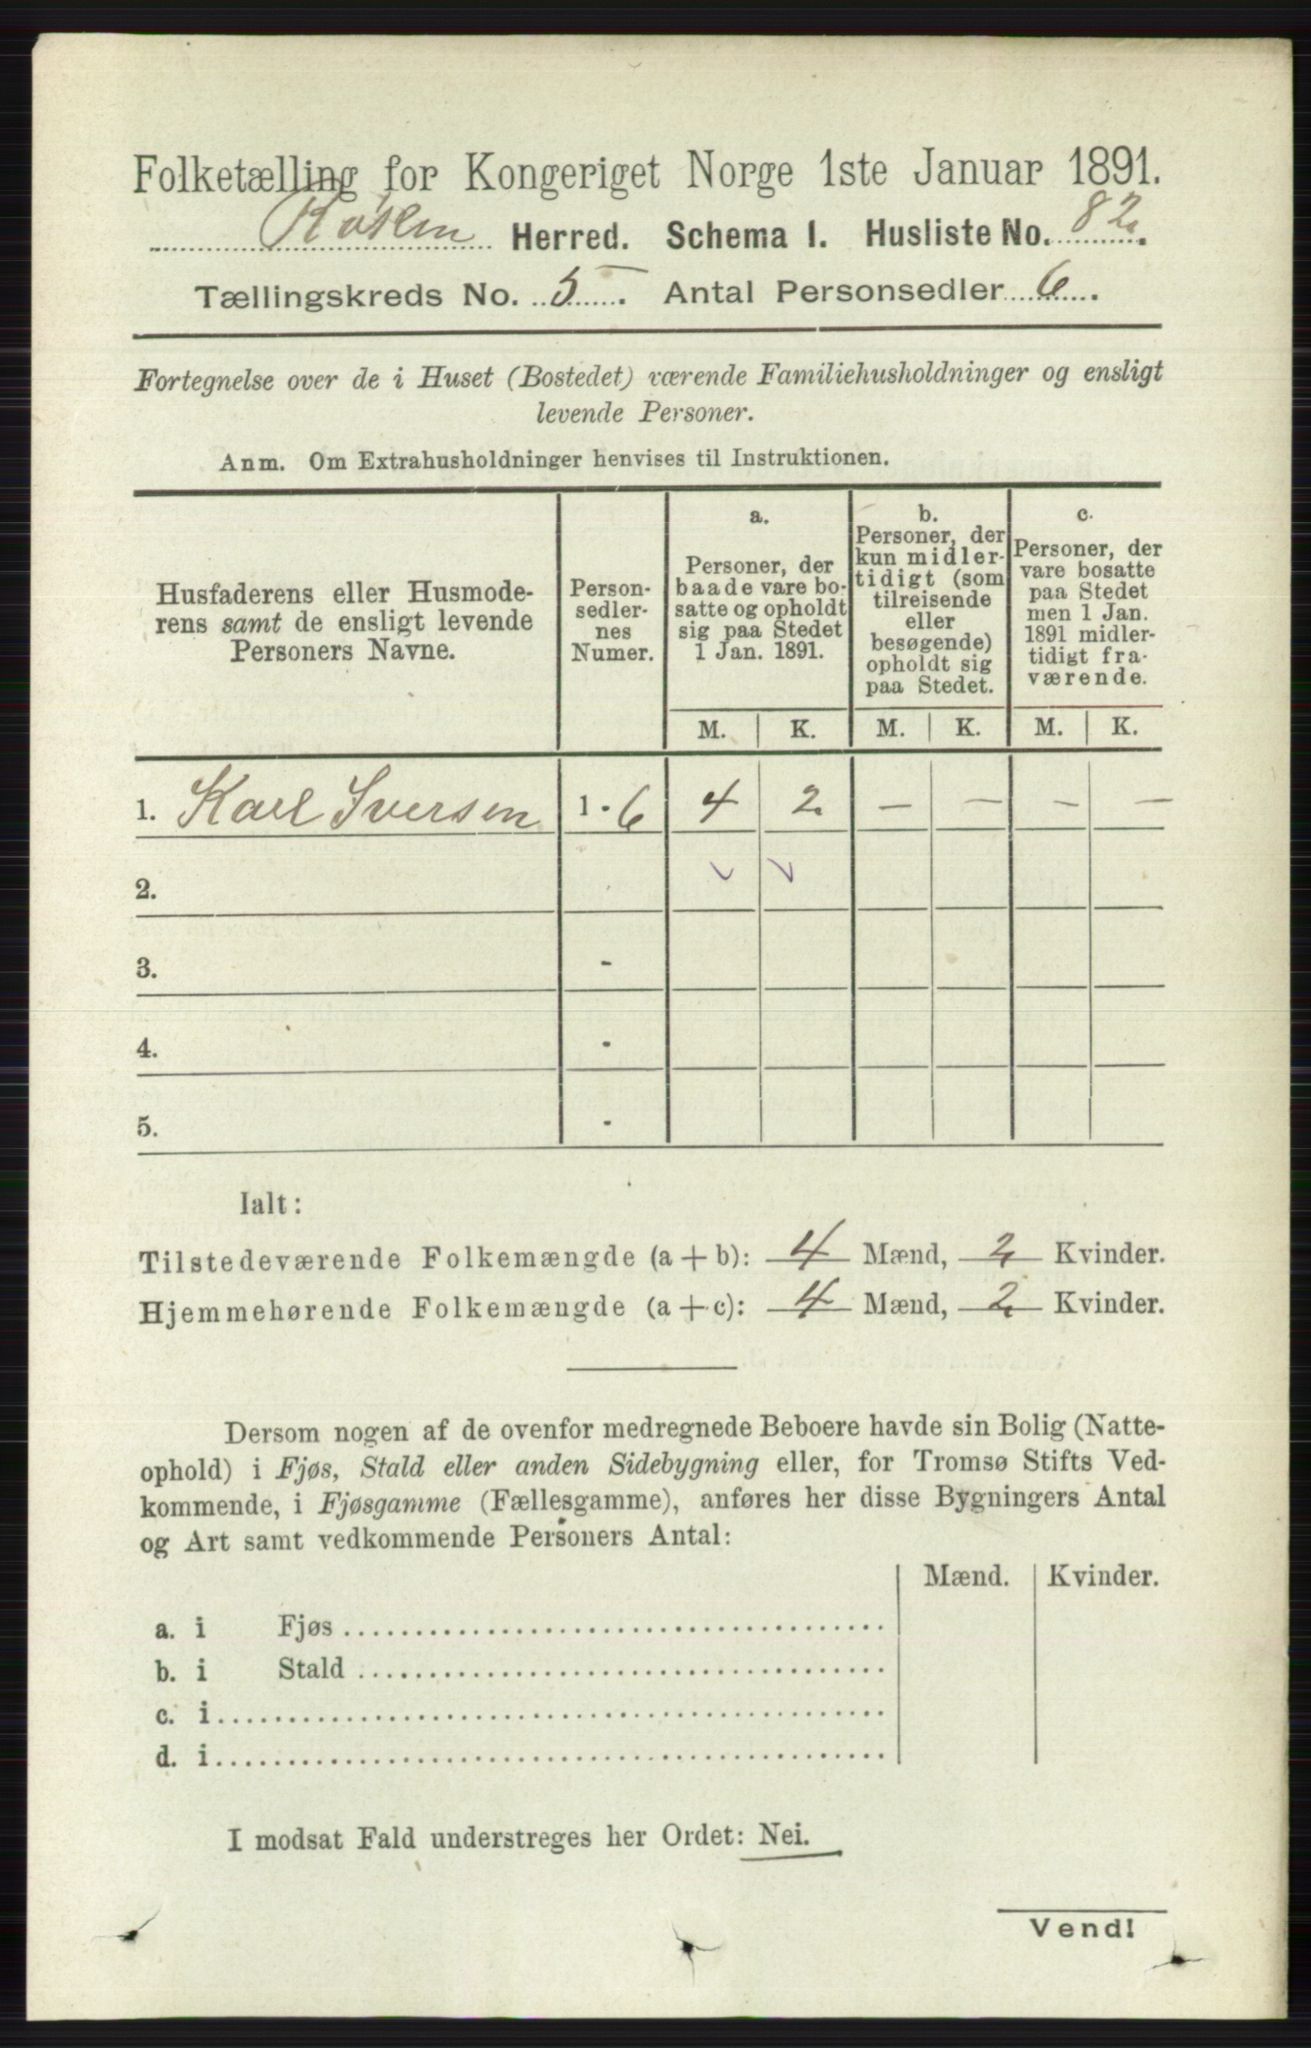 Folketælling for Kongeriget Norge 1ste Januar 1891.
Røken Herred. Schema I. Husliste No. 82.
Tællingskreds No. 5. Antal Personsedler 6.
Fortegnelse over de i Huset (Bostedet) værende Familiehusholdninger og ensligt
levende Personer.
Anm. Om Extrahusholdninger henvises til Instruktionen.
Husfaderens eller Husmode-
rens samt de ensligt levende
Personers Navne.
Person-
sedler-
nes
Numer.
a.
Personer, der
baade vare bo-
satte og opholdt
sig paa Stedet
1 Jan. 1891.
b.
Personer, der
kun midler-
tidigt (som
tilreisende
eller
besøgende)
opholdt sig
paa Stedet.
c.
Personer, der
vare bosatte
paa Stedet
men 1 Jan.
1891 midler-
tidigt fra-
værende.
M. K. M. K. M. K.
1. Karl Iversen 1 - 6 4 2 — — — —
2.
3. -
4. -
5. -
Ialt:
Tilstedeværende Folkemængde (a + b): 4 Mænd, 2 Kvinder.
Hjemmehørende Folkemængde (a + c): 4 Mænd, 2 Kvinder.
Dersom nogen af de ovenfor medregnede Beboere havde sin Bolig (Natte-
ophold) i Fjøs, Stald eller anden Sidebygning eller, for Tromsø Stifts Ved-
kommende, i Fjøsgamme (Fællesgamme), anføres her disse Bygningers Antal
og Art samt vedkommende Personers Antal:
Mænd. Kvinder.
a. i Fjøs
b. i Stald
c. i
d. i
I modsat Fald understreges her Ordet: Nei.
Vend!